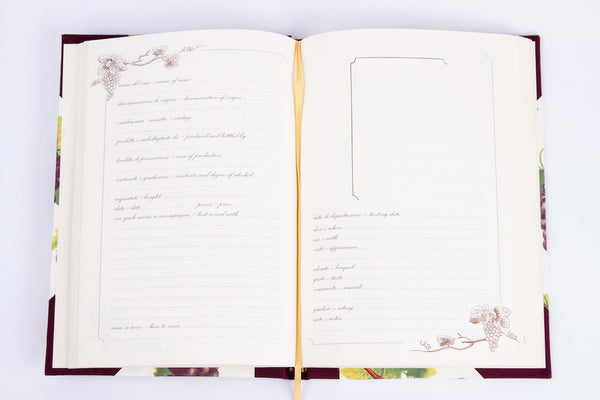 nome del vino – name of wine
denominazione di origine – denomination of origin
vendemmia annata – vintage
prodotto e imbottigliato da – produced and bottled by
località di provenienza – area of production
contenuto e gradazione – contents and degree of alcohol
acquistato – bought
data – date
prezzo – price
con quale arrosto si accompagna – best served with
come si serve – how to serve
data di degustazione – tasting date
dove – where
con – with
vista – appearance
odorato – bouquet
gusto – taste
commento – remark
giudizio – rating
note – notes